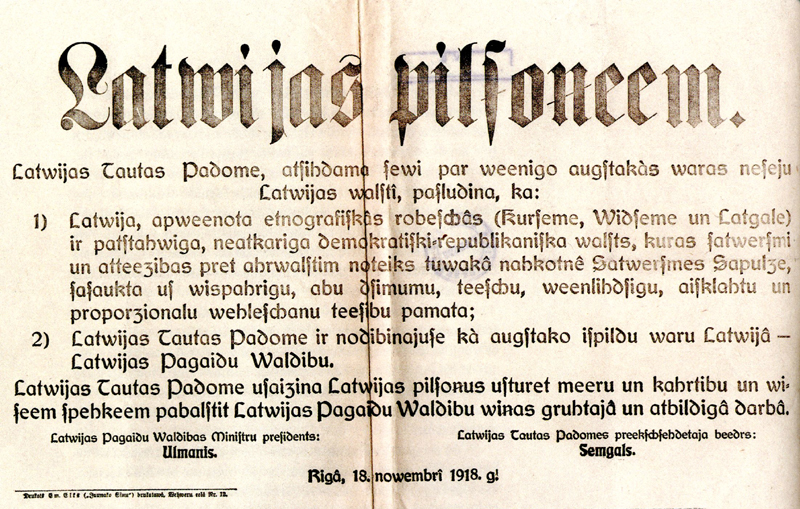 Latwijas pilſoneem.
Latwijas Tautas Padome, atſihdama ſewi par weenigo augſtakàs waras neſeju
Latwijas walſtî, paſludina, ka:
1) Latwija, apweenota etnografiſkâs robeſchâs (Kurſeme, Widſeme un Latgale)
ir patſtahwiga, neatkariga demokratiſki-republikaniſka walſts, kuras ſatwerſmi
un atteezibas pret ahrwalſtim noteiks tuwakâ nahkotnê Satwerſmes Sapulze,
ſaſaukta uſ wispahrigu, abu dſimumu, teeſchu, weenlihdſigu, aiſklahtu un
proporzionalu wehleſchanu teeſibu pamata;
2) Latwijas Tautas Padome ir nodibinajuſe kà augſtako iſpildu waru Latwijâ —
Latwijas Pagaidu Waldibu.
Latwijas Tautas Padome uſaizina Latwijas pilſoņus uſturet meeru un kahrtibu un wi-
ſeem ſpehkeem pabalſtit Latwijas Pagaidu Waldibu wiņas gruhtajâ un atbildigâ darbâ.
Latwijas Pagaidu Waldibas Miniſtru preſidents:
Ulmanis.
Latwijas Tautas Padomes preekſchſehdetaja beedrs:
Semgals.
Rigâ, 18. nowembrî 1918. g.
Drukats Ew. („Jaunako Siņu") drukatawâ, Nr. 13.